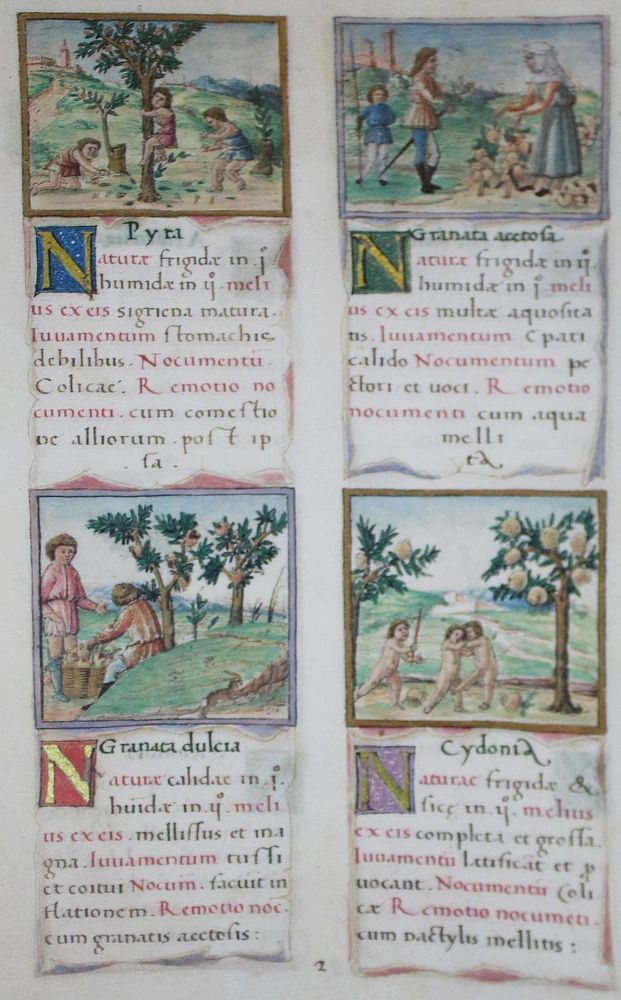 Pyra
Naturæ frigidæ in .j.
humidæ in ij. meli
us ex eis sigriena matura.
Iuvamentum stomachis
debilibus. Nocumentū.
Colicae. Remotio no
cumenti. cum comestio
ne alliorum. post ip
sa.
Granata acetosa
Naturæ frigidæ in ij.
humidæ in .j. meli
us ex eis multæ aquosita
tis. Iuvamentum Epati
calido Nocumentum pe
ctori et voci. Remotio
nocumenti cum aqua
melli
ta
Granata dulcia
Naturæ calidæ in .j.
humidæ in .ij. meli
us ex eis. mellissus et ina
gna. Iuvamentum tussi
et coitui Nocum. facuit in
flationem. Remotio noc.
cum granatis acetosis:
Cydonia
Naturae frigidæ &
sicç in .ij. melius
ex eis completa et grossa.
Iuvamentū lætificāt et p
vocant. Nocumentū Coli
cæ Remotio nocumēti.
cum dactylis mellitis:
2